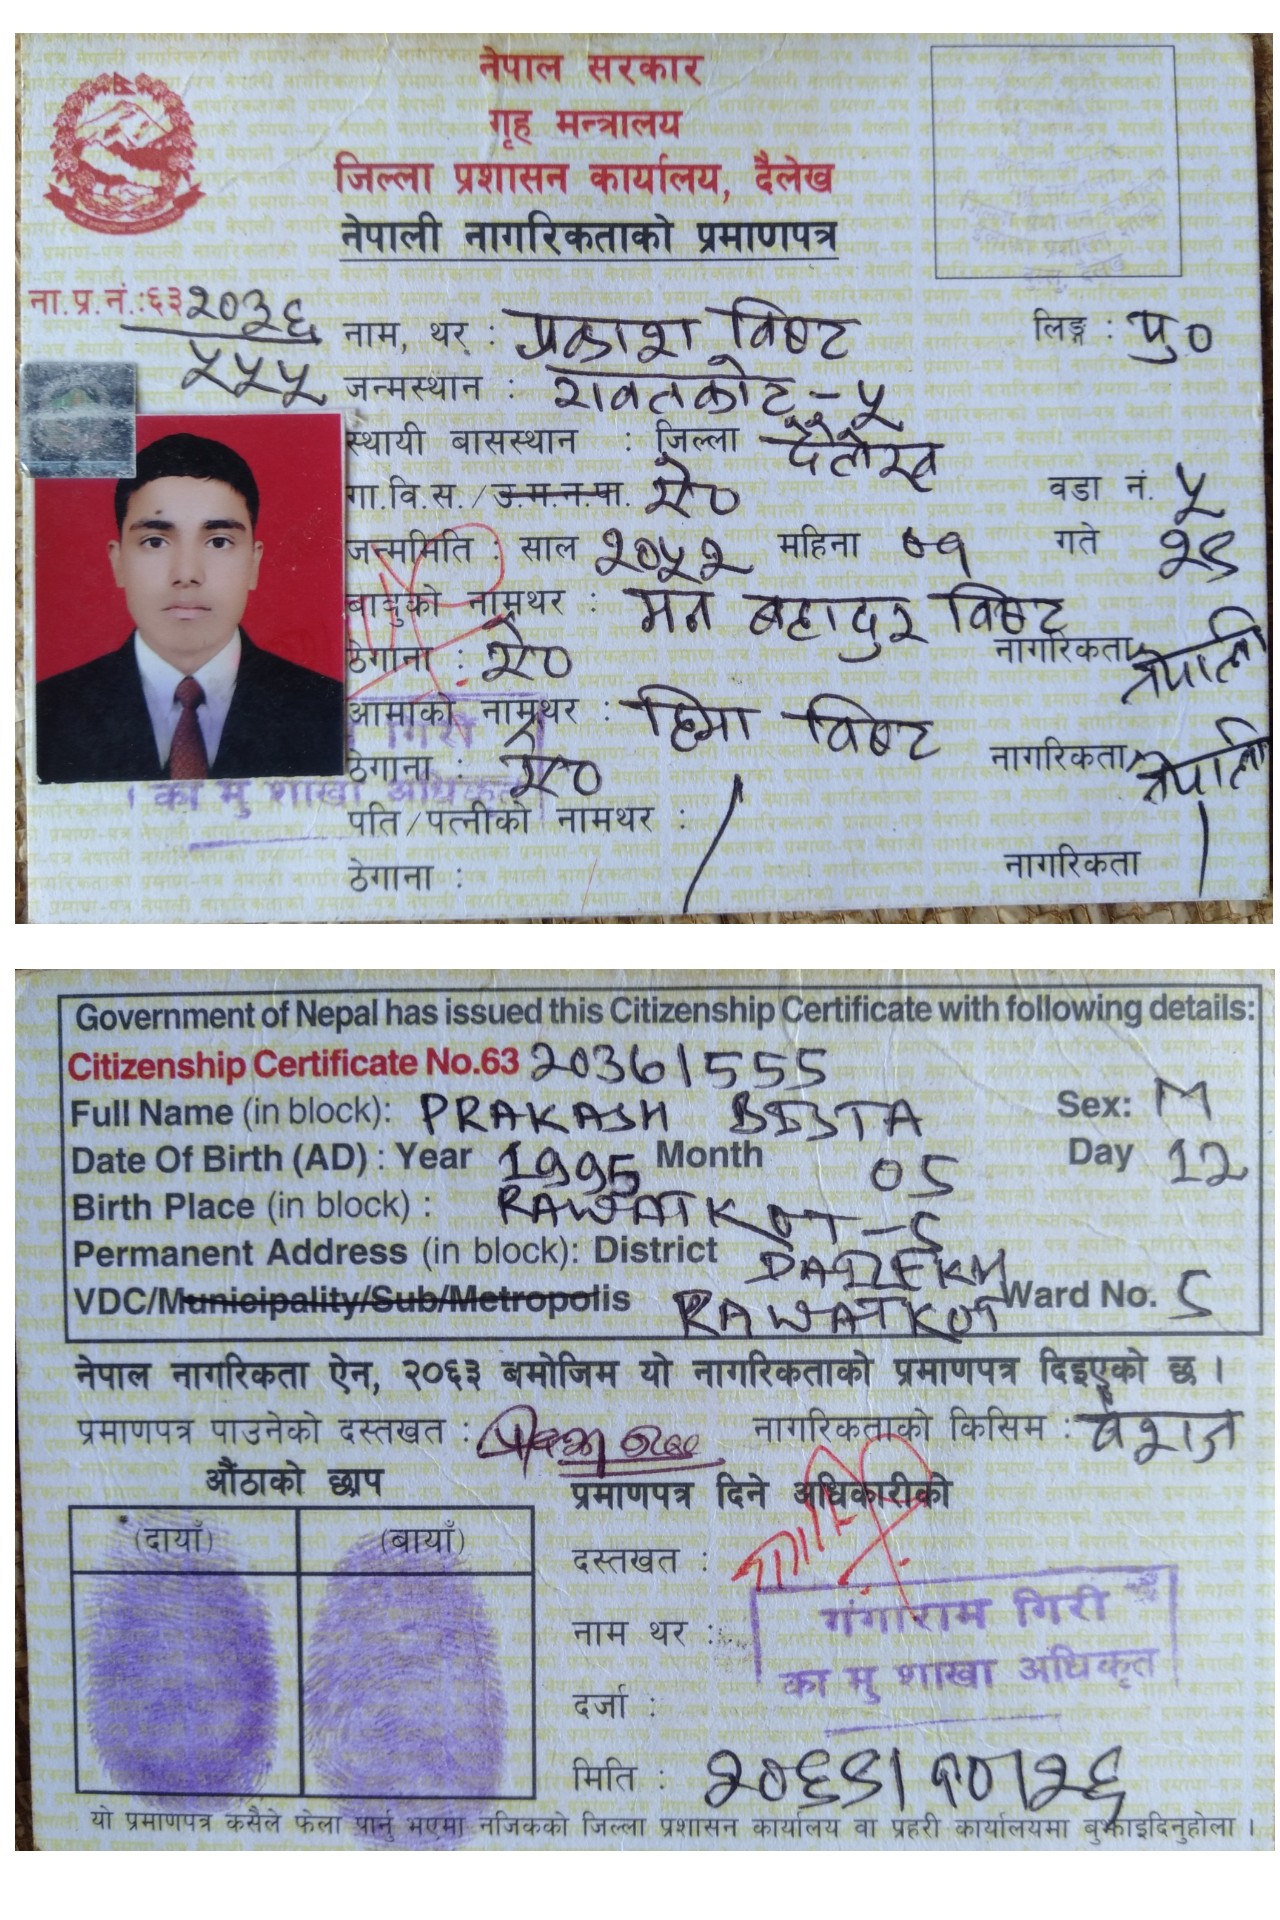 नेपाल सरकार
गृह मन्त्रालय
जिल्ला प्रशासन कार्यालय, दैलेख
नेपाली नागरिकताको प्रमाणपत्र
ना.प्र.नं.:६३२०३६
५५५
नाम, थर : प्रकाश विष्ट लिङ्ग : पु०
जन्मस्थान : रावतकोट - ५
स्थायी बासस्थान : जिल्ला दैलेख
गा.वि.स./उ.म.न.पा. ऐ० वडा नं. ५
जन्ममिति : साल २०५२ महिना ०१ गते २९
बाबुको नामथर : मन बहादुर विष्ट
ठेगाना : ऐ० नागरिकता नेपाली
आमाको नामथर : हिमा विष्ट
ठेगाना : ऐ० नागरिकता नेपाली
गिरी
का मु शाखा अधिकृत
पति/पत्नीको नामथर :
ठेगाना : नागरिकता
Government of Nepal has issued this Citizenship Certificate with following details:
Citizenship Certificate No.63 2036/555
Full Name (in block): PRAKASH BISTA Sex: M
Date Of Birth (AD) : Year 1995 Month 05 Day 12
Birth Place (in block) : RAWATKOT-5
Permanent Address (in block): District DAILEKH
VDC/Municipality/Sub/Metropolis RAWATKOT Ward No. 5
नेपाल नागरिकता ऐन, २०६३ बमोजिम यो नागरिकताको प्रमाणपत्र दिइएको छ ।
प्रमाणपत्र पाउनेको दस्तखत : नागरिकताको किसिम : वंशज
औंठाको छाप
प्रमाणपत्र दिने अधिकारीको
(दायाँ) (बायाँ)
दस्तखत :
नाम थर : गंगाराम गिरी
का मु शाखा अधिकृत
दर्जा :
मिति : २०६९।१०।२६
यो प्रमाणपत्र कसैले फेला पार्नु भएमा नजिकको जिल्ला प्रशासन कार्यालय वा प्रहरी कार्यालयमा बुझाइदिनुहोला ।